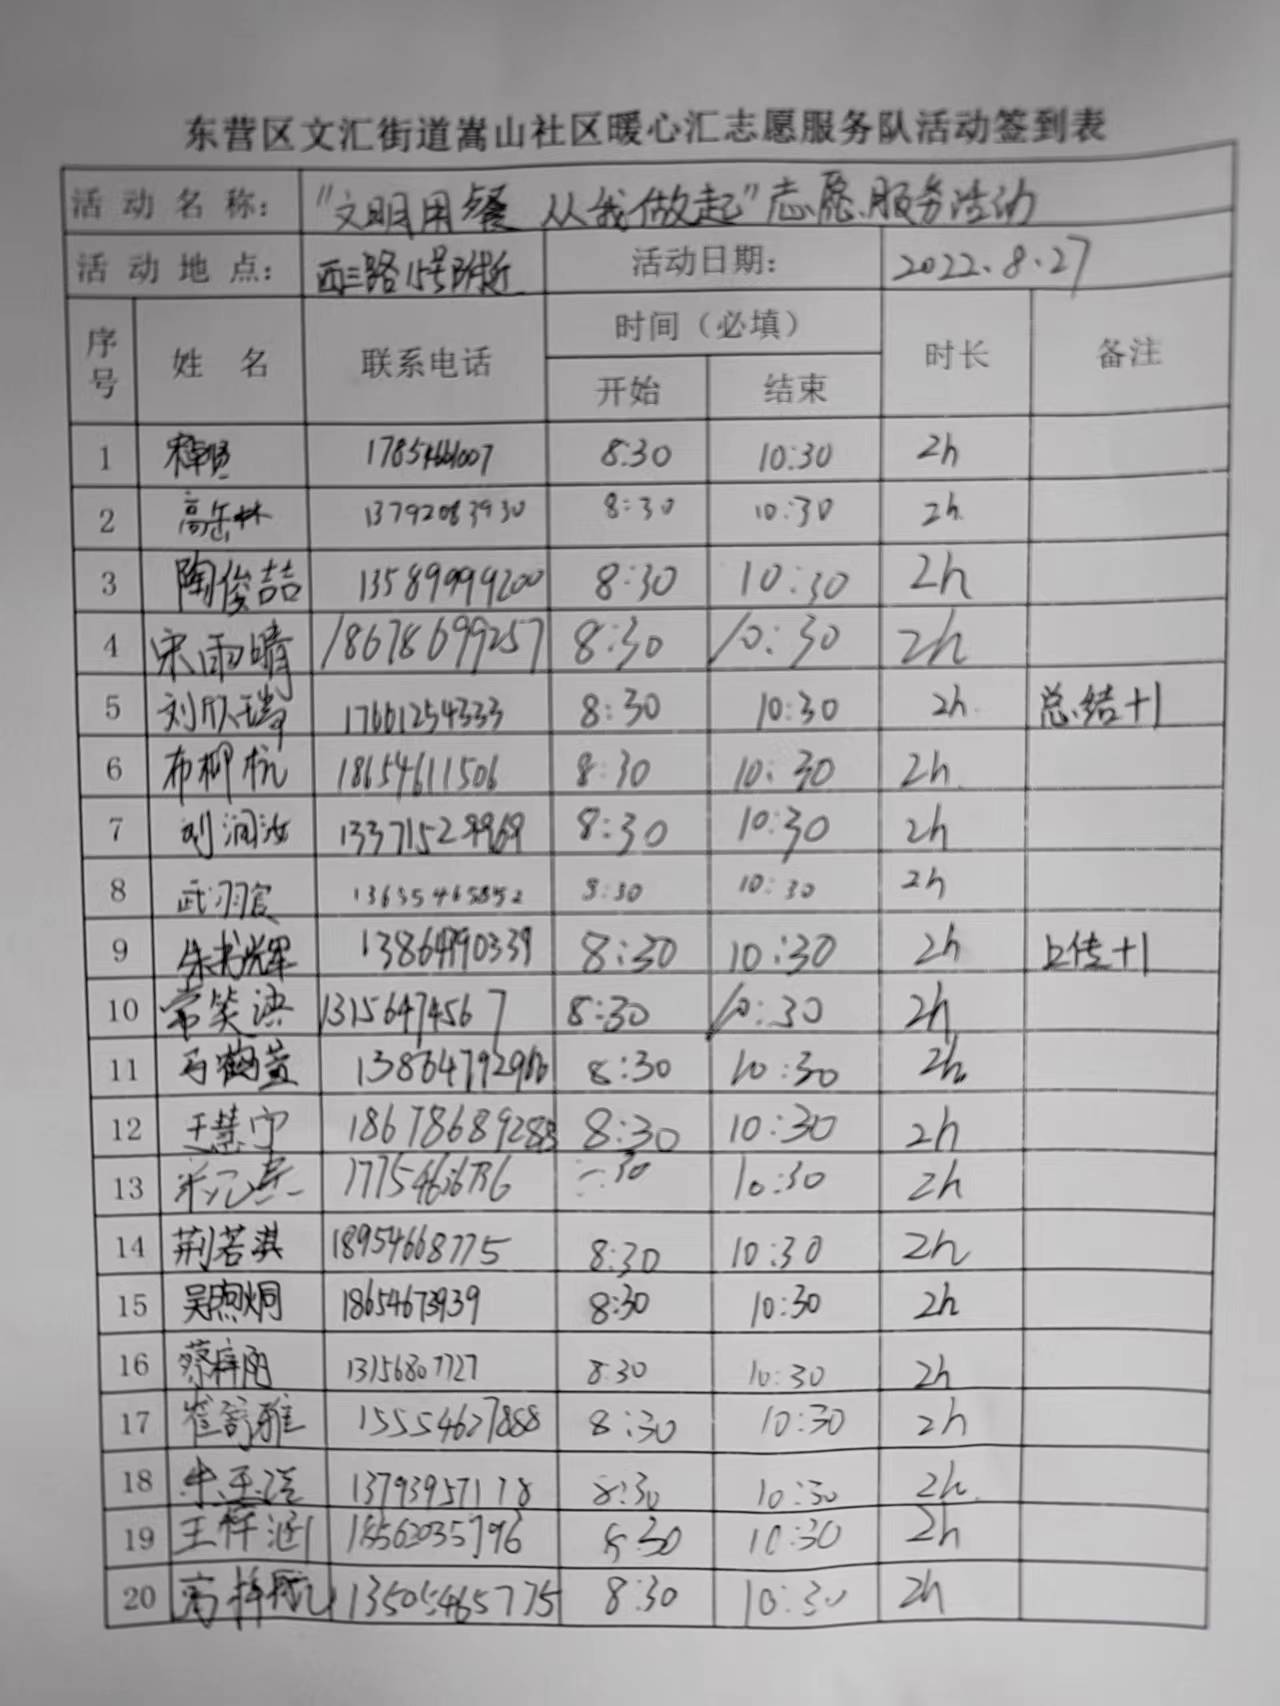 东营区文汇街道嵩山社区暖心汇志愿服务队活动签到表
活动名称： "文明用餐 从我做起"志愿服务活动
活动地点： 西三路15号附近 活动日期： 2022.8.27
序号 姓名 联系电话 时间（必填） 时长 备注
开始 结束
1 8:30 10:30 2h
2 高岳林 13792083930 8:30 10:30 2h
3 陶俊喆 13589999200 8:30 10:30 2h
4 宋雨晴 18678699257 8:30 10:30 2h
5 刘欣瑞 17661254333 8:30 10:30 2h 总结+1
6 布柳杭 18654611506 8:30 10:30 2h
7 刘润汝 8:30 10:30 2h
8 武羽宸 8:30 10:30 2h
9 朱书辉 13864790339 8:30 10:30 2h 上传+1
10 常笑洪 13156474567 8:30 10:30 2h
11 马鹤萱 8:30 10:30 2h
12 王慧宁 8:30 10:30 2h
13 :30 10:30 2h
14 荆若淇 18954668775 8:30 10:30 2h
15 吴煦炯 18654673939 8:30 10:30 2h
16 蔡梓阳 13156807727 8:30 10:30 2h
17 崔舒雅 15554627888 8:30 10:30 2h
18 13793957178 8:30 10:30 2h
19 王梓涵 18562035796 8:30 10:30 2h
20 13505465775 8:30 10:30 2h